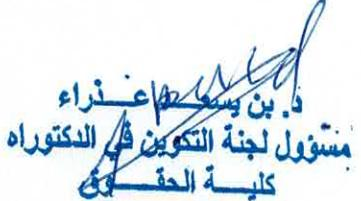 د. بن يسعد عذراء
مسؤول لجنة التكوين في الدكتوراه
كلية الحقوق